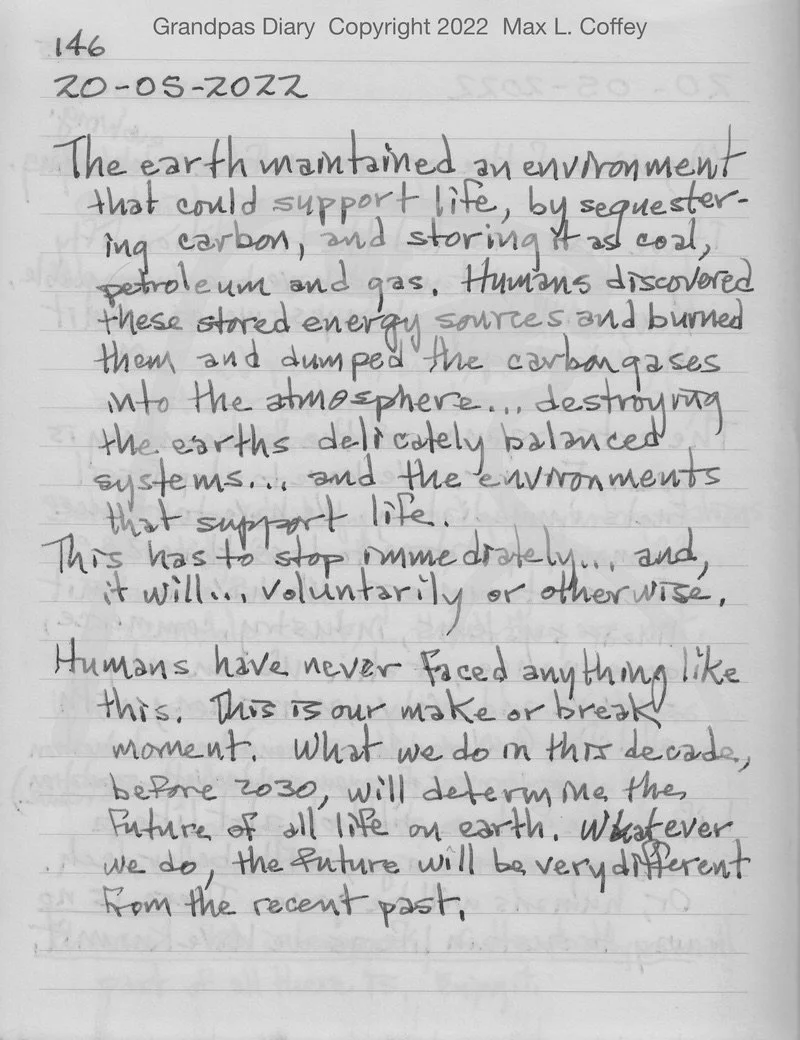 Grandpas Diary Copyright 2022 Max L. Coffey
146
20-05-2022
The earth maintained an environment
that could support life, by sequester-
ing carbon, and storing it as coal,
petroleum and gas. Humans discovered
these stored energy sources and burned
them and dumped the carbon gases
into the atmosphere... destroying
the earths delicately balanced
systems... and the environments
that support life.
This has to stop immediately... and,
it will... voluntarily or otherwise.
Humans have never faced anything like
this. This is our make or break
moment. What we do in this decade,
before 2030, will determine the
future of all life on earth. Whatever
we do, the future will be very different
from the recent past.